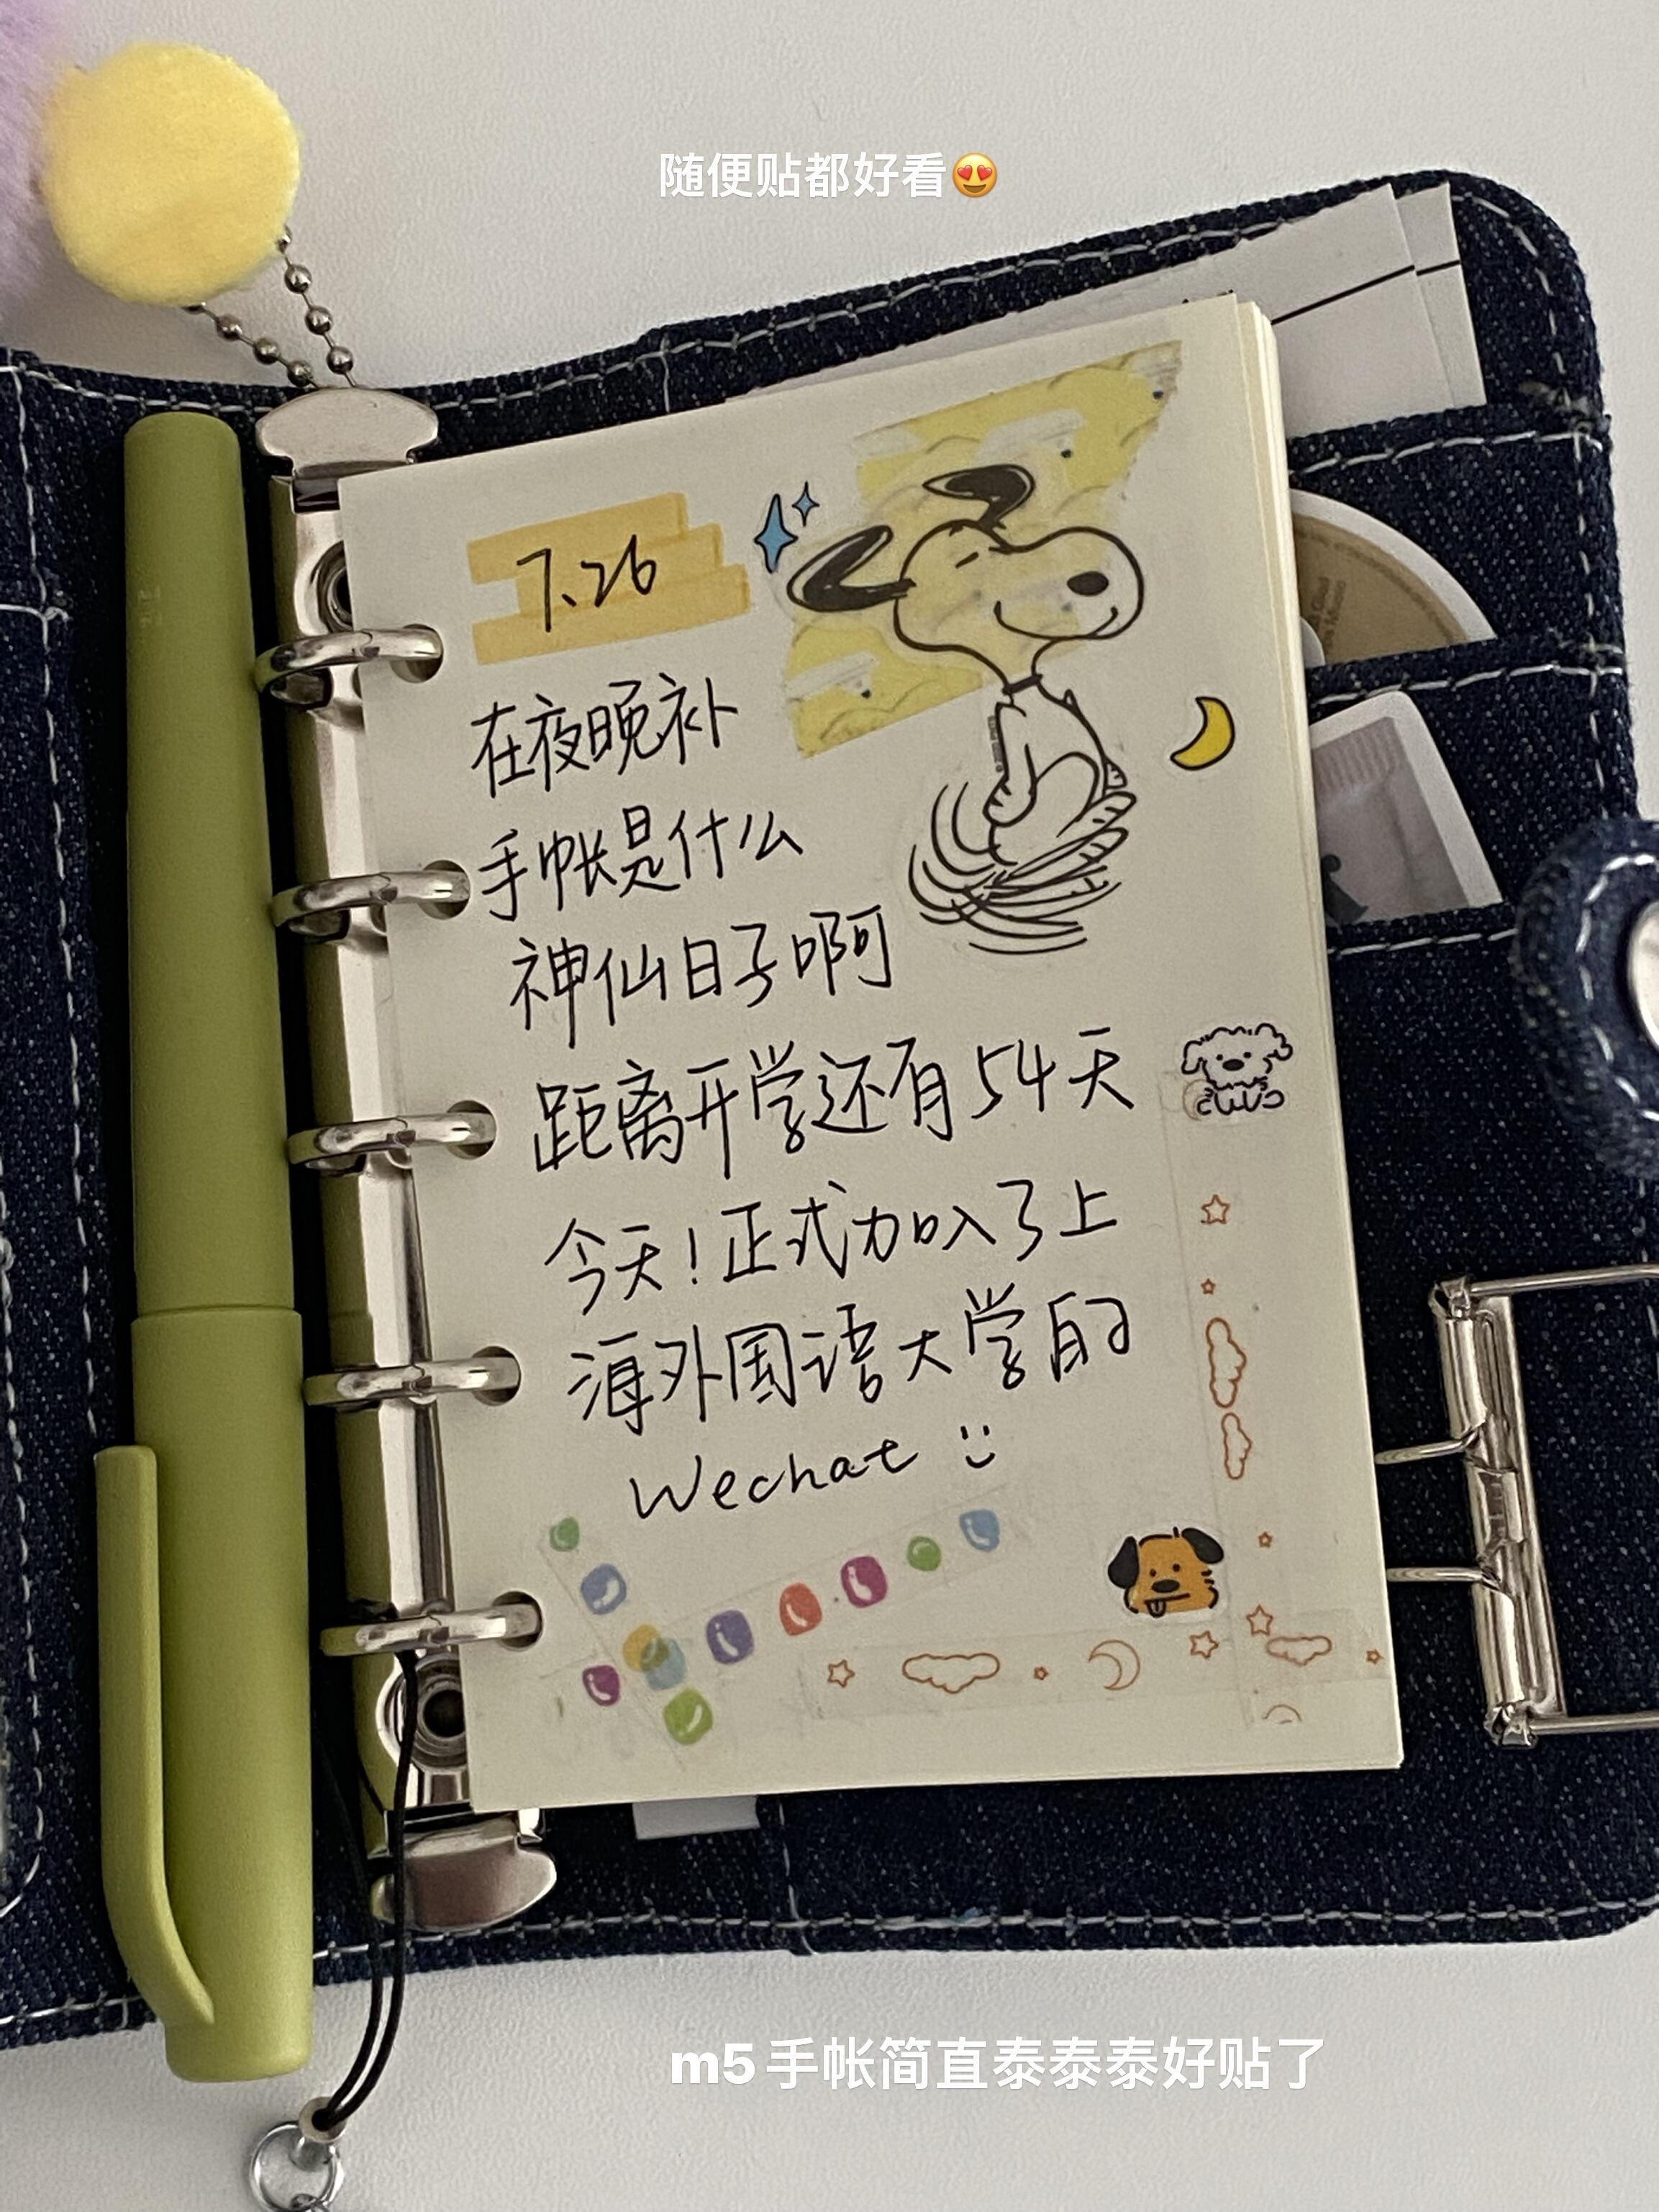 随便贴都好看😍
7.26
在夜晚补
手帐是什么
神仙日子啊
距离开学还有54天
今天!正式加入了上
海外国语大学的
Wechat :)
m5手帐简直泰泰泰好贴了